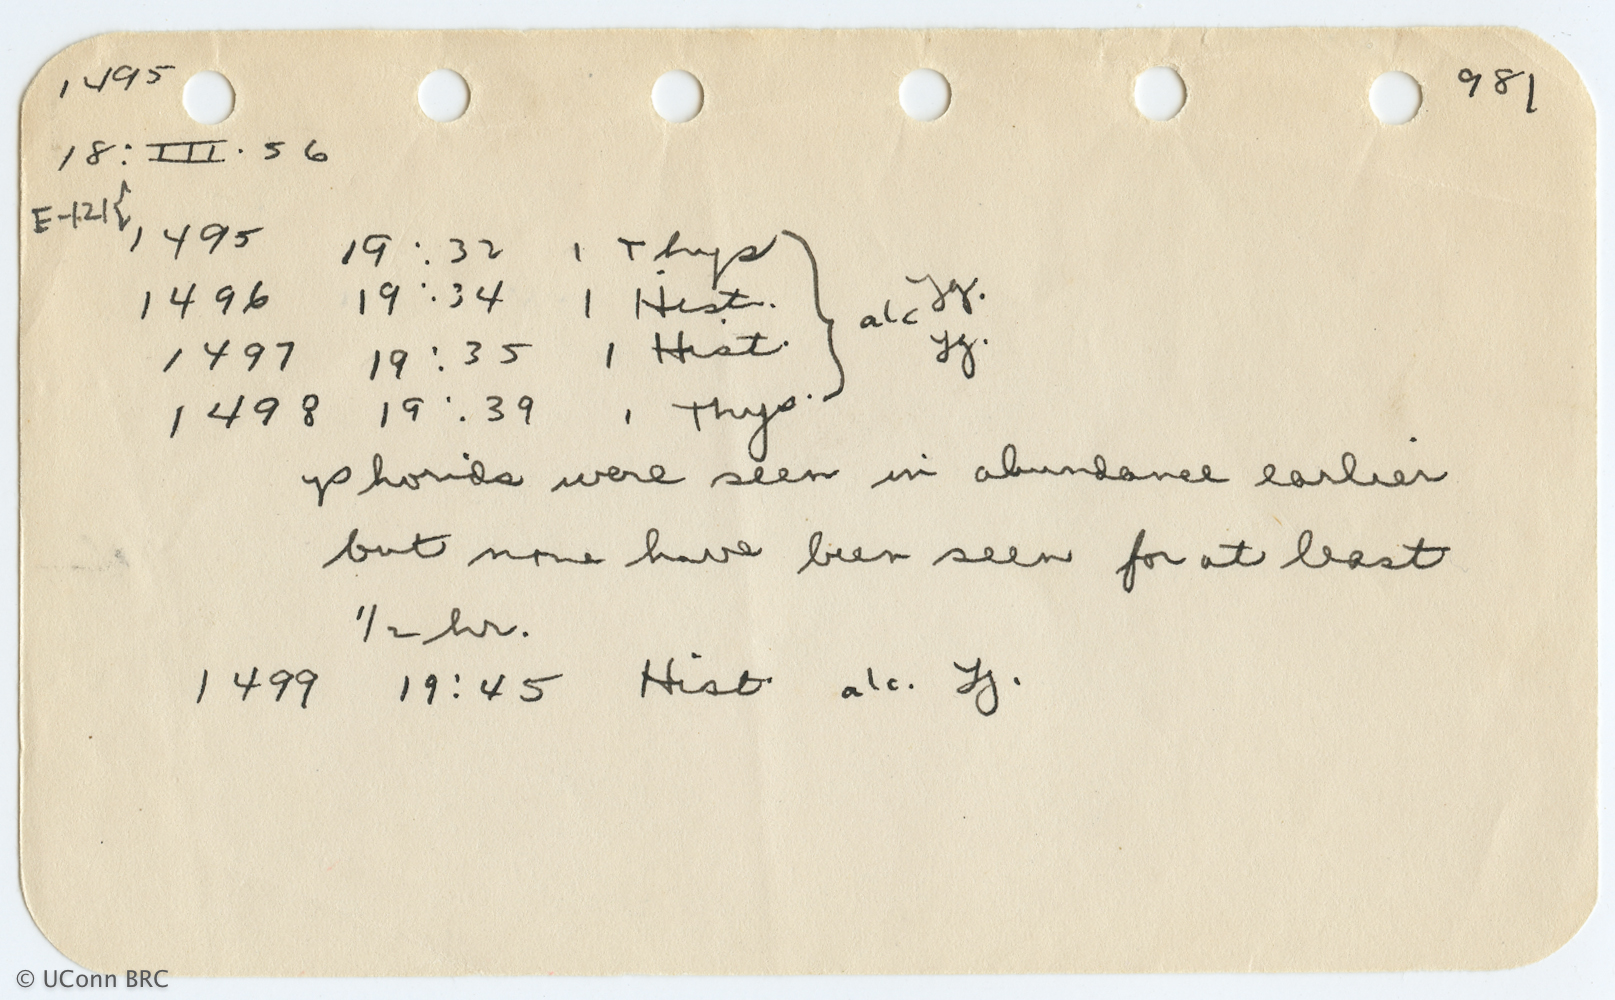 1495 981
18:III.56
E-121{
1495 19:32 1 Thys
1496 19:34 1 Hist. alc
1497 19:35 1 Hist.
1498 19:39 1 Thys.
phorids were seen in abundance earlier
but none have been seen for at least
1/2 hr.
1499 19:45 Hist. alc.
© UConn BRC